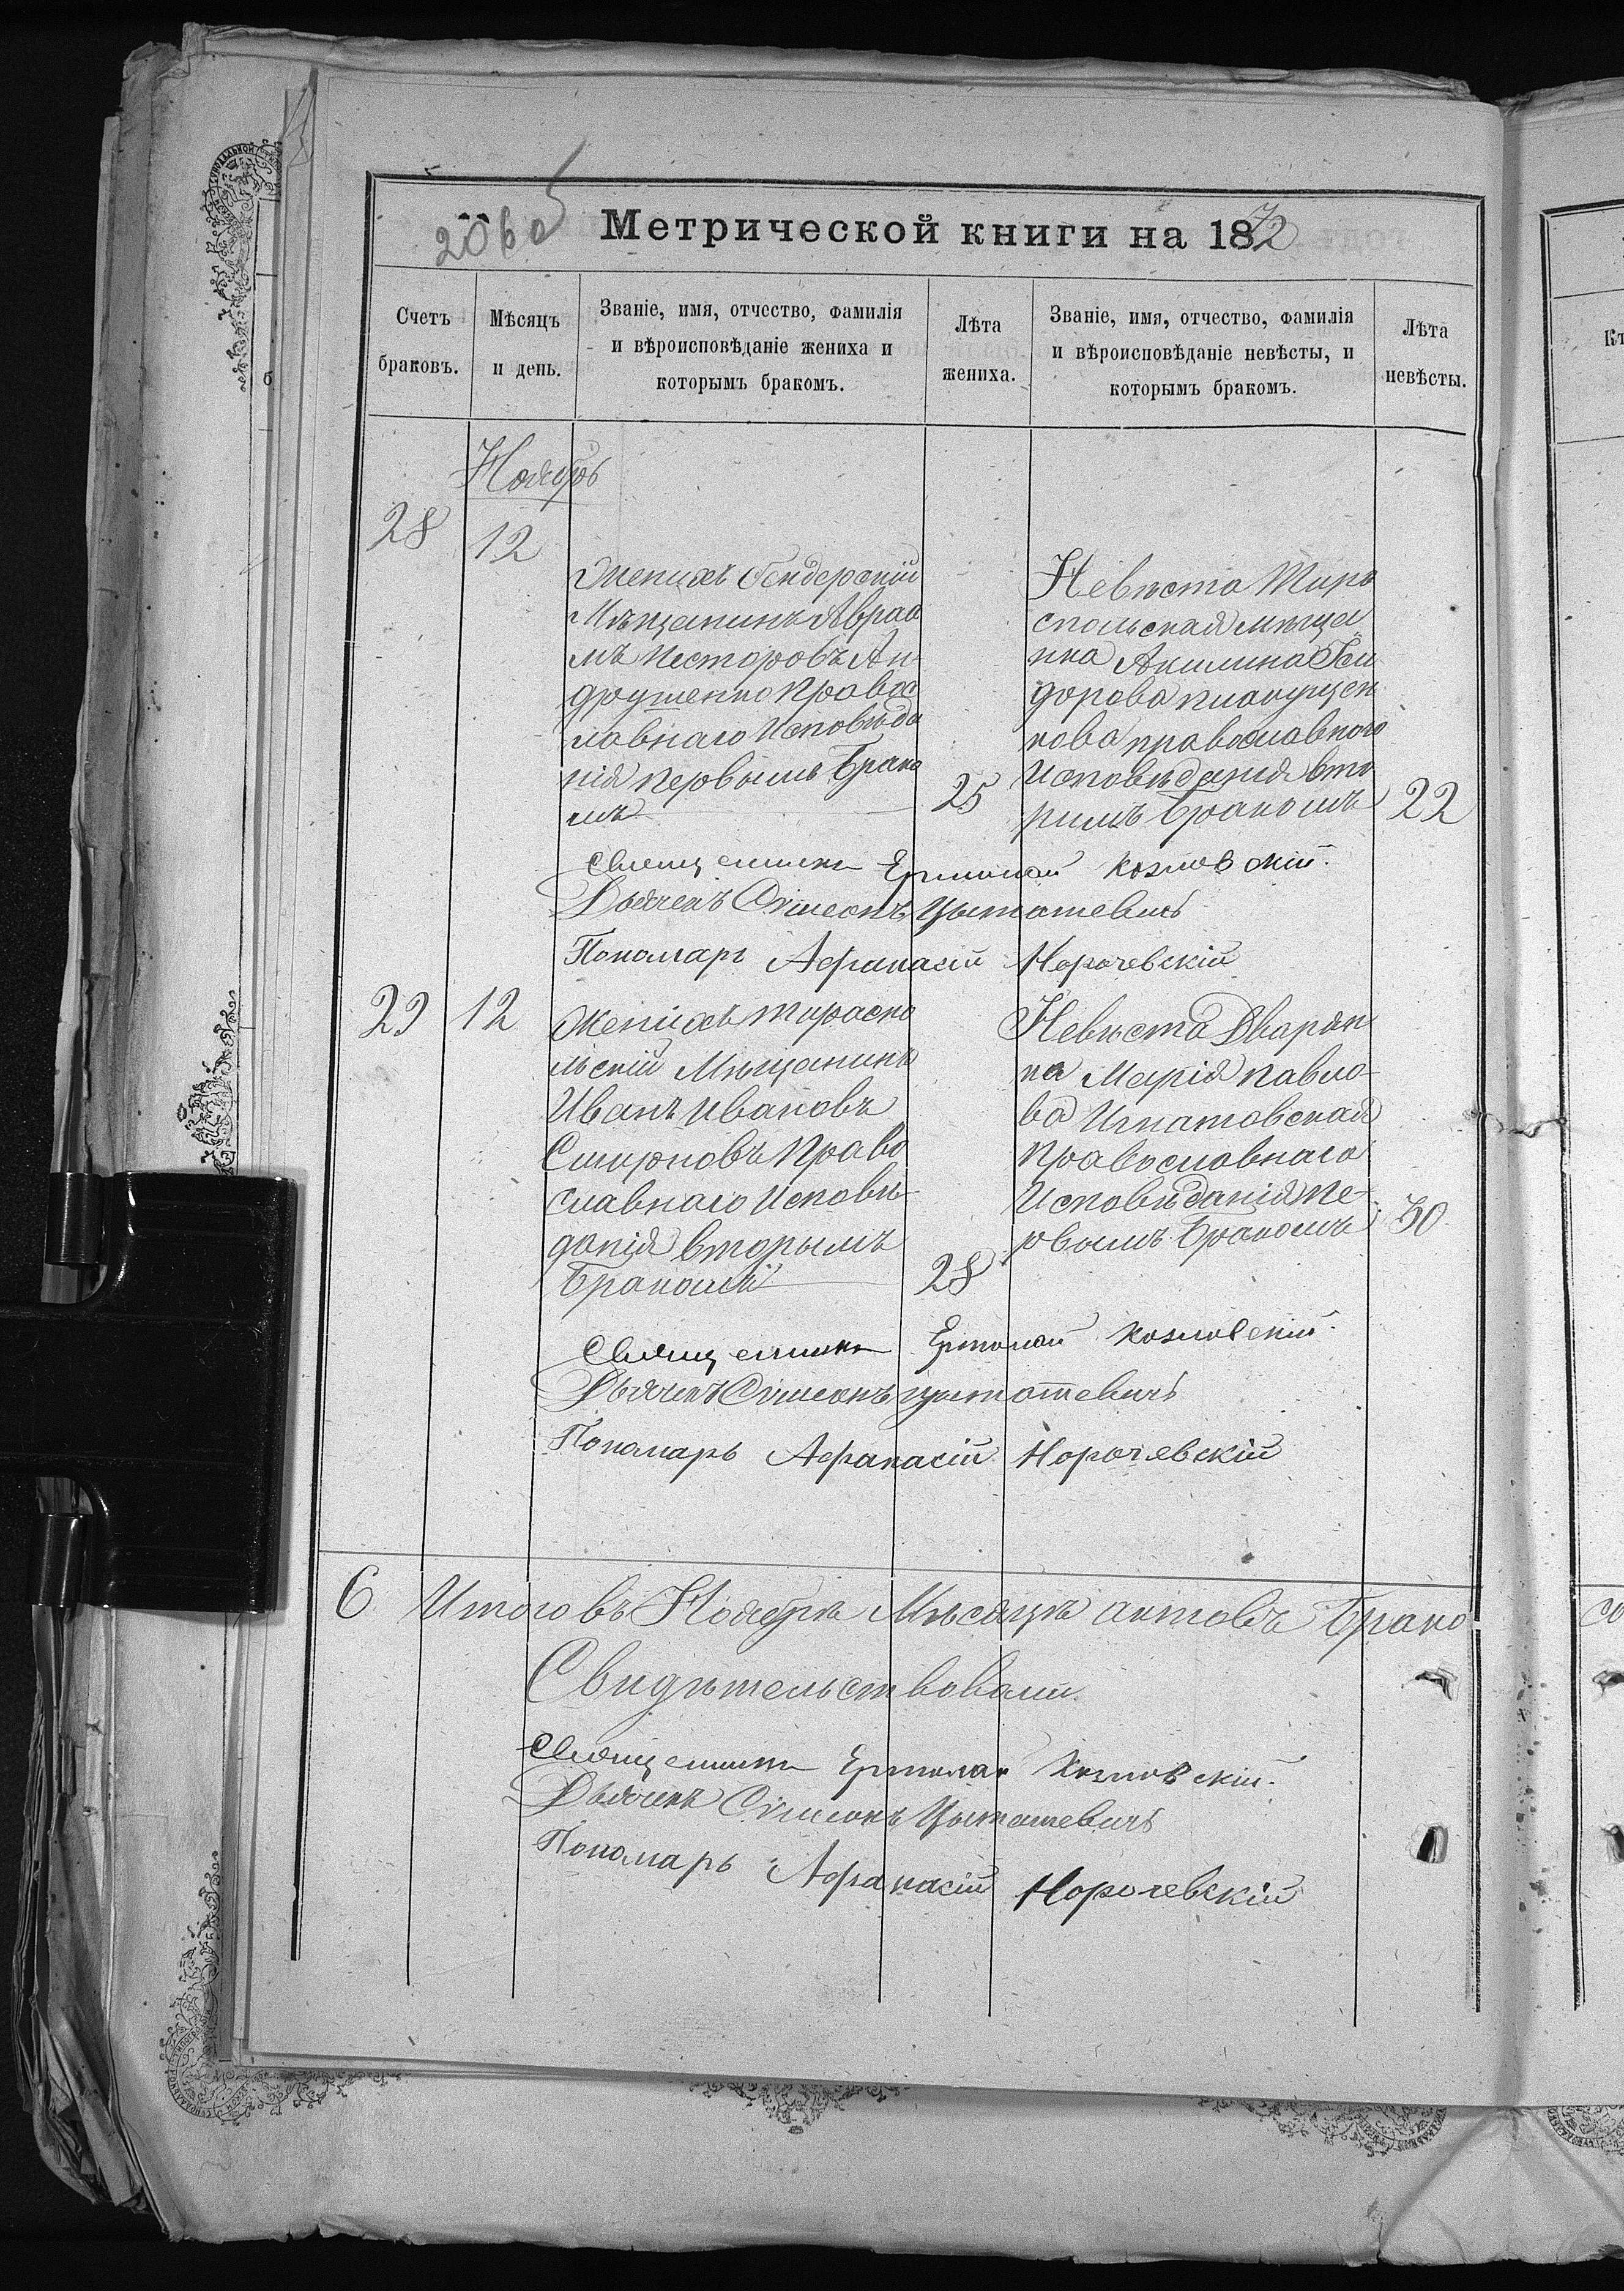 2060
Метрической книги на 1872
Счетъ браковъ.
Мѣсяцъ и день.
Званіе, имя, отчество, фамилія
и вѣроисповѣданіе жениха и
которымъ бракомъ.
Лѣта жениха.
Званіе, имя, отчество, фамилія
и вѣроисповѣданіе невѣсты, и
которымъ бракомъ.
Лѣта невѣсты.
Ноябрь
28
12
Женихъ бендерскій
Мѣщанинъ Авраа
мъ Несторовъ Ан-
друшенко Правос
лавнаго Исповѣда
нія Первымъ Брако
мъ
25
Невѣста Тира
спольская мѣща
нка Акилина
дорова
нова православнаго
Исповѣданія вто
римъ Бракомъ
22
Священникъ Ермолай Козловскій.
Дьячекъ Симеонъ Цытатевичъ
Пономарь Афанасій Норочевскій
29
12
Женихъ Тираспо
льскій Мѣщанинъ
Иванъ Ивановъ
Смирновъ Право
славнаго Исповѣ-
данія вторымъ
Бракомъ
28
Невѣста Дворян
ка Марія Павло-
ва Игнатовская
Православнаго
Исповѣданія Пе-
рвымъ Бракомъ
30
Священникъ Ермолай Козловскій.
Дьячекъ Симеонъ Цытатевичъ
Пономарь Афанасій Норочевскій
6 Итого въ Ноябрѣ Мѣсяцѣ актовъ Брако
Свидѣтельствовали.
Священникъ Ермолай Козловскій.
Дьячекъ Симеонъ Цытатевичъ
Пономарь Афанасій Норочевскій